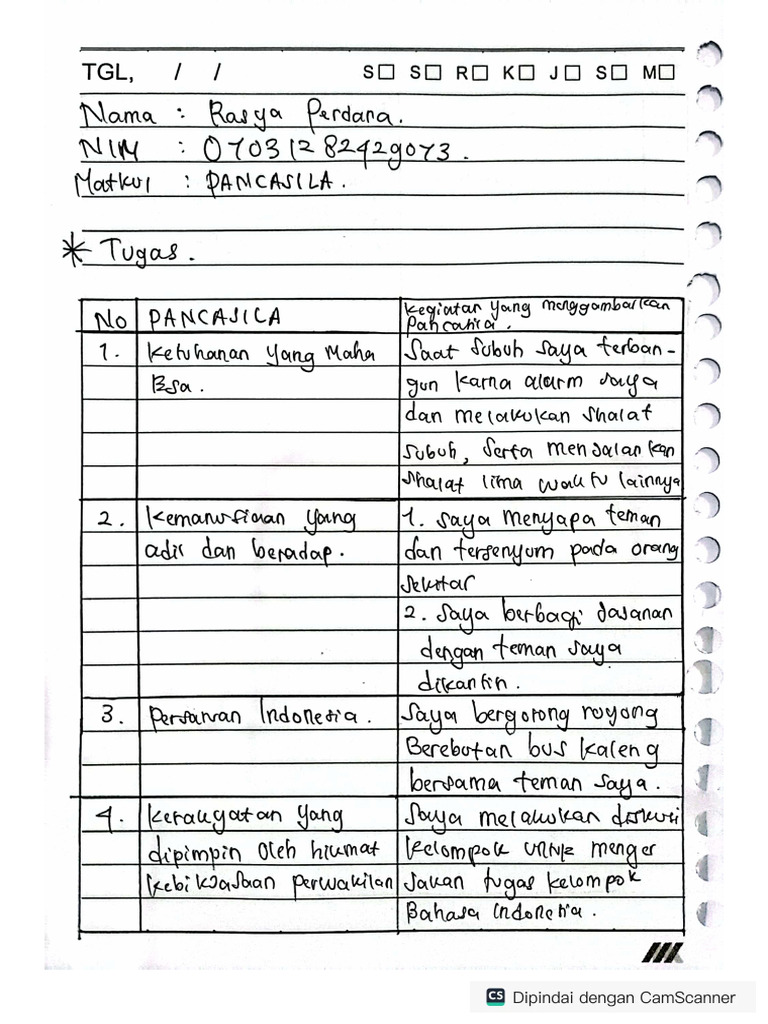 TGL, / / S□ S□ R□ K□ J□ S□ M□
Nama : Rasya Perdana.
NIM : 07031282429073.
Matkul : PANCASILA.
* Tugas.
No PANCASILA Kegiatan yang menggambarkan
Pancasila.
1. Ketuhanan yang Maha
Esa.
Saat subuh saya terban-
gun karna alarm saya
dan melakukan shalat
subuh, serta menjalankan
shalat lima waktu lainnya
2. Kemanusiaan yang
adil dan beradap.
1. Saya menyapa teman
dan tersenyum pada orang
sekitar
2. Saya berbagi jajanan
dengan teman saya
dikantin.
3. Persatuan Indonesia.
Saya bergotong royong
Berebutan bus kaleng
bersama teman saya.
4. Kerakyatan yang
dipimpin oleh hikmat
kebikjasaan perwakilan
Saya melakukan diskusi
kelompok untuk menger
jakan tugas kelompok
Bahasa Indonesia.
CS Dipindai dengan CamScanner